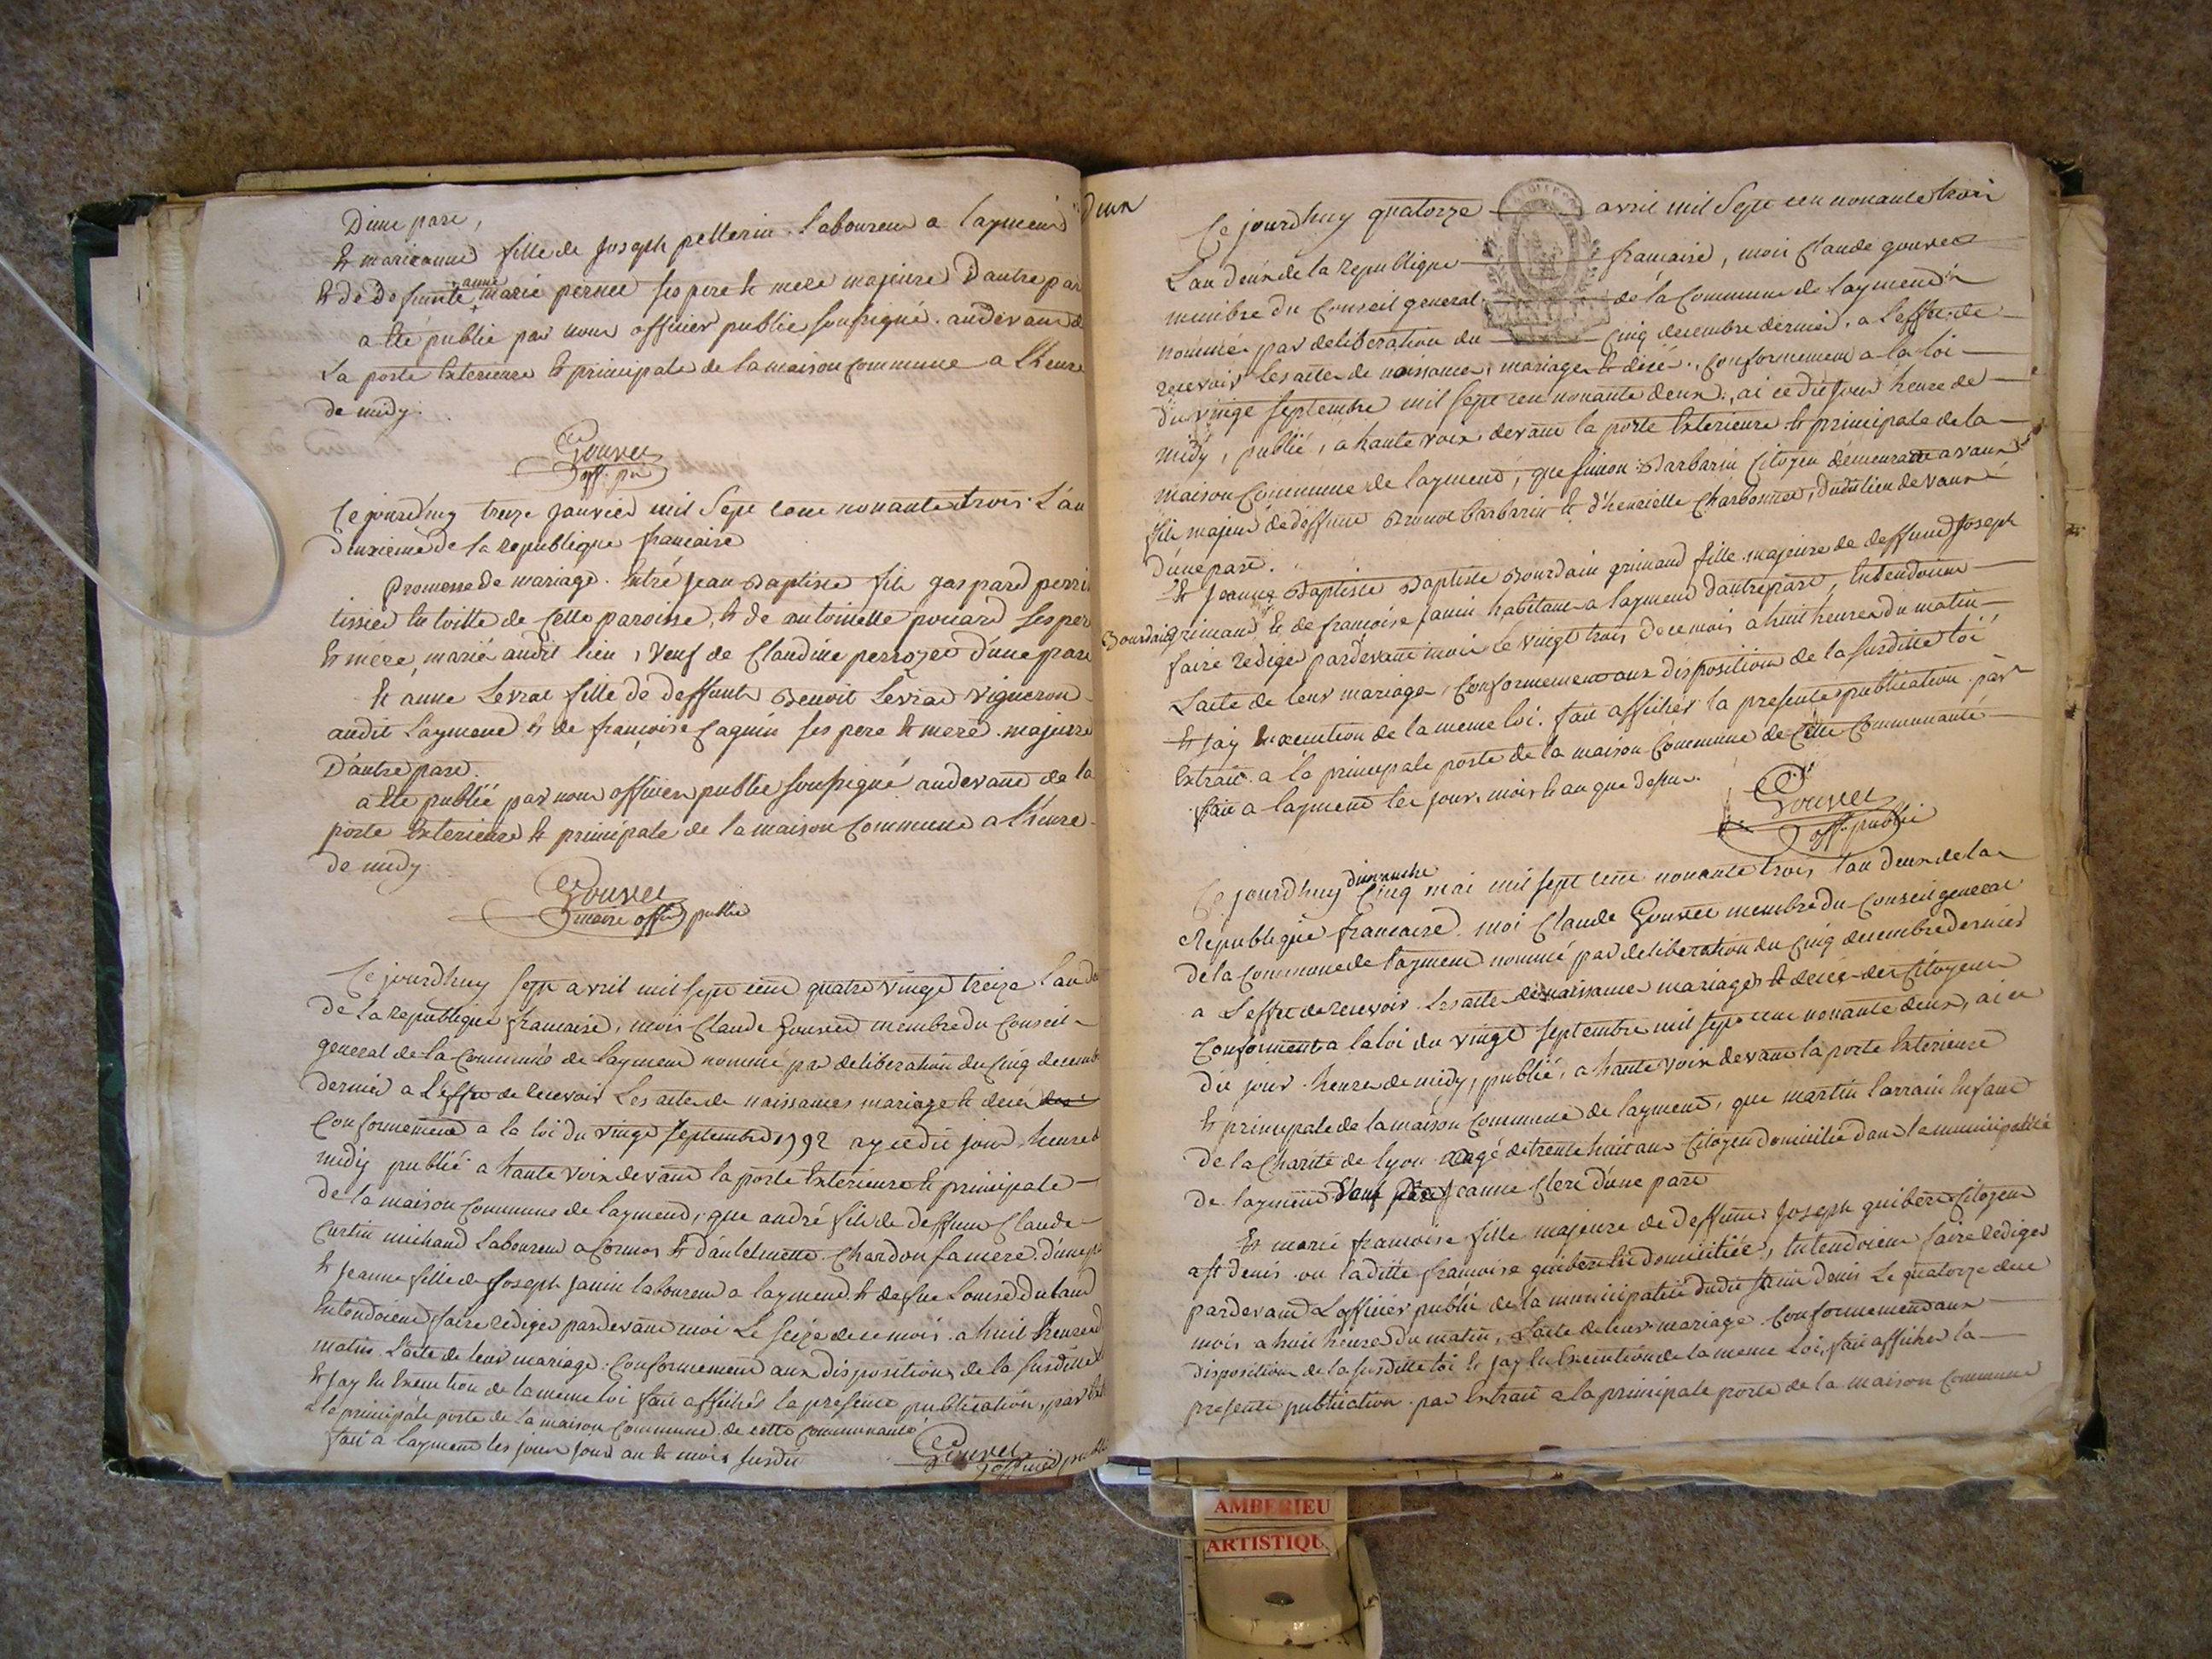 D'une part,
Et marieanne fille de Joseph pellerin. Laboureur a laymend
Et de defunte anne marie pernee ses pere et mere majeure D'autre par
a été publié par nous officier public soussigné. audevant de
La porte Exterieure et principale de la maison commune a l'heure
de midy.
Gouvet
off. pu
Ce jourd'huy treize janvier mil sept cent nonante trois L'an
Deuxieme de la republique francaise
promesse de mariage. Entre jean Baptiste fils gaspard perrin
tissier En toille de cette paroisse, et de antoinette ses per
Et mere, marié audit lieu, veuf de Claudine perrozet d'une part
Et anne Levrat fille de deffunts Benoit Levrat vigneron
audit Laymend et de françoise Caguin ses pere et mere. majeure
D'autre part.
a Eté publié par nous officier public soussigné audevant de la
porte Exterieure et principale de la maison commune a l'heure
de midy.
Gouvet
maire off. public
Ce jourdhuy sept avril mil sept cent quatre vingt treize l'an d
de la republique francaise, moi Claude Gouvet membre du Conseil
general de la Commune de laymend nommé par deliberation du Cinq decemb
dernier a l'effet de recevoir Les actes de naissances mariage et decés
Conformement a la loi du vingt septembre 1792 ay ce dit jour heure d
midy publié a haute voix devant la porte Exterieure et principale
de la maison Commune de laymend, que andré fils de deffunt Claude
Curtin michaud Laboureur a Cormoz Et Chardon sa mere. d'une p
Et jeanne fille de Joseph janin laboureur a laymend. Et de Louise Dutand
Entendoient faire rediger pardevant moi Le seize de ce mois. a huit heures d
matin. L'acte de leur mariage. Conformement aux dispositions de la susditte
Et j'ay En Execution de la meme loi fait afficher la presente publication, par
a la principale porte de la maison commune de cette communauté
fait a laymend les jour an et mois susdit
Gouvet
officier pu
Deux
Ce jourdhuy quatorze avril mil Sept cen nonante trois
L'an deux de la republique francaise, moi Claude gouvet
membre du Conseil general de la Commune de laymend
nommé par deliberation du Cinq decembre dernier, a L'effet de
recevoir Les actes de naissance, mariage et decé, Conformement a la loi
du vingt septembre mil sept cen nonante deux, ai ce dit jour heure de
midy, publié, a haute voix devant la porte Exterieure et principale de la
maison Commune de laymend, que simon Barbarin Citoyen demeurant a vaux
fils majeur de deffunt Barbarin et d'henriette Charbonnet, dudit lieu de vaux
d'une part.
Et Jeanne Baptiste Baptiste Bourdain grimaud fille majeure de deffunt Joseph
Bourdain grimaud et de francoise janin habitant a laymend d'autre part, Entendoient
faire rediger pardevant moi le vingt trois de ce mois a huit heures du matin
L'acte de leur mariage, Conformement aux disposition de la susditte loi
Et j'ay En Execution de la meme loi. fait afficher la presente publication par
Extrait a la principale porte de la maison Commune de cette Communauté
fait a laymend les jour, mois et an que dessus.
Gouvet
off. public
Ce jourdhuy dimanche Cinq mai mil sept cent nonante trois l'an deux de la
Republique francaise. moi Claude Gouvet membre du Conseil general
de la Commune de laymend nommé par deliberation du Cinq decembre dernier
a L'effet de recevoir. Les acte de naissance mariages et decés des Citoyens
Conforment a la loi du vingt septembre mil sept cent nonante deux, ai ce
dit jour heure de midy, publié, a haute voix devant la porte Exterieure
Et principale de la maison Commune de laymend, que martin larrain Enfant
de la Charité de lyon agé de trente huit ans Citoyen domicilié dans la municipalité
de laymend veuf jeanne Clerc d'une part
Et marie francoise fille majeure de Deffunt Joseph guibere Citoyen
a st denis ou la ditte francoise domiciliée, Entendoient faire rediger
pardevant L'officier public de la municipalité dudit saint Denis Le quatorze du
mois a huit heures du matin, L'acte de leur mariage Conformement aux
Disposition de la susditte loi Et j'ay En Execution de la meme Loi, fait afficher la
presente publication. par Extrait a la principale porte de la maison Commune
AMBERIEU
ARTISTIQU